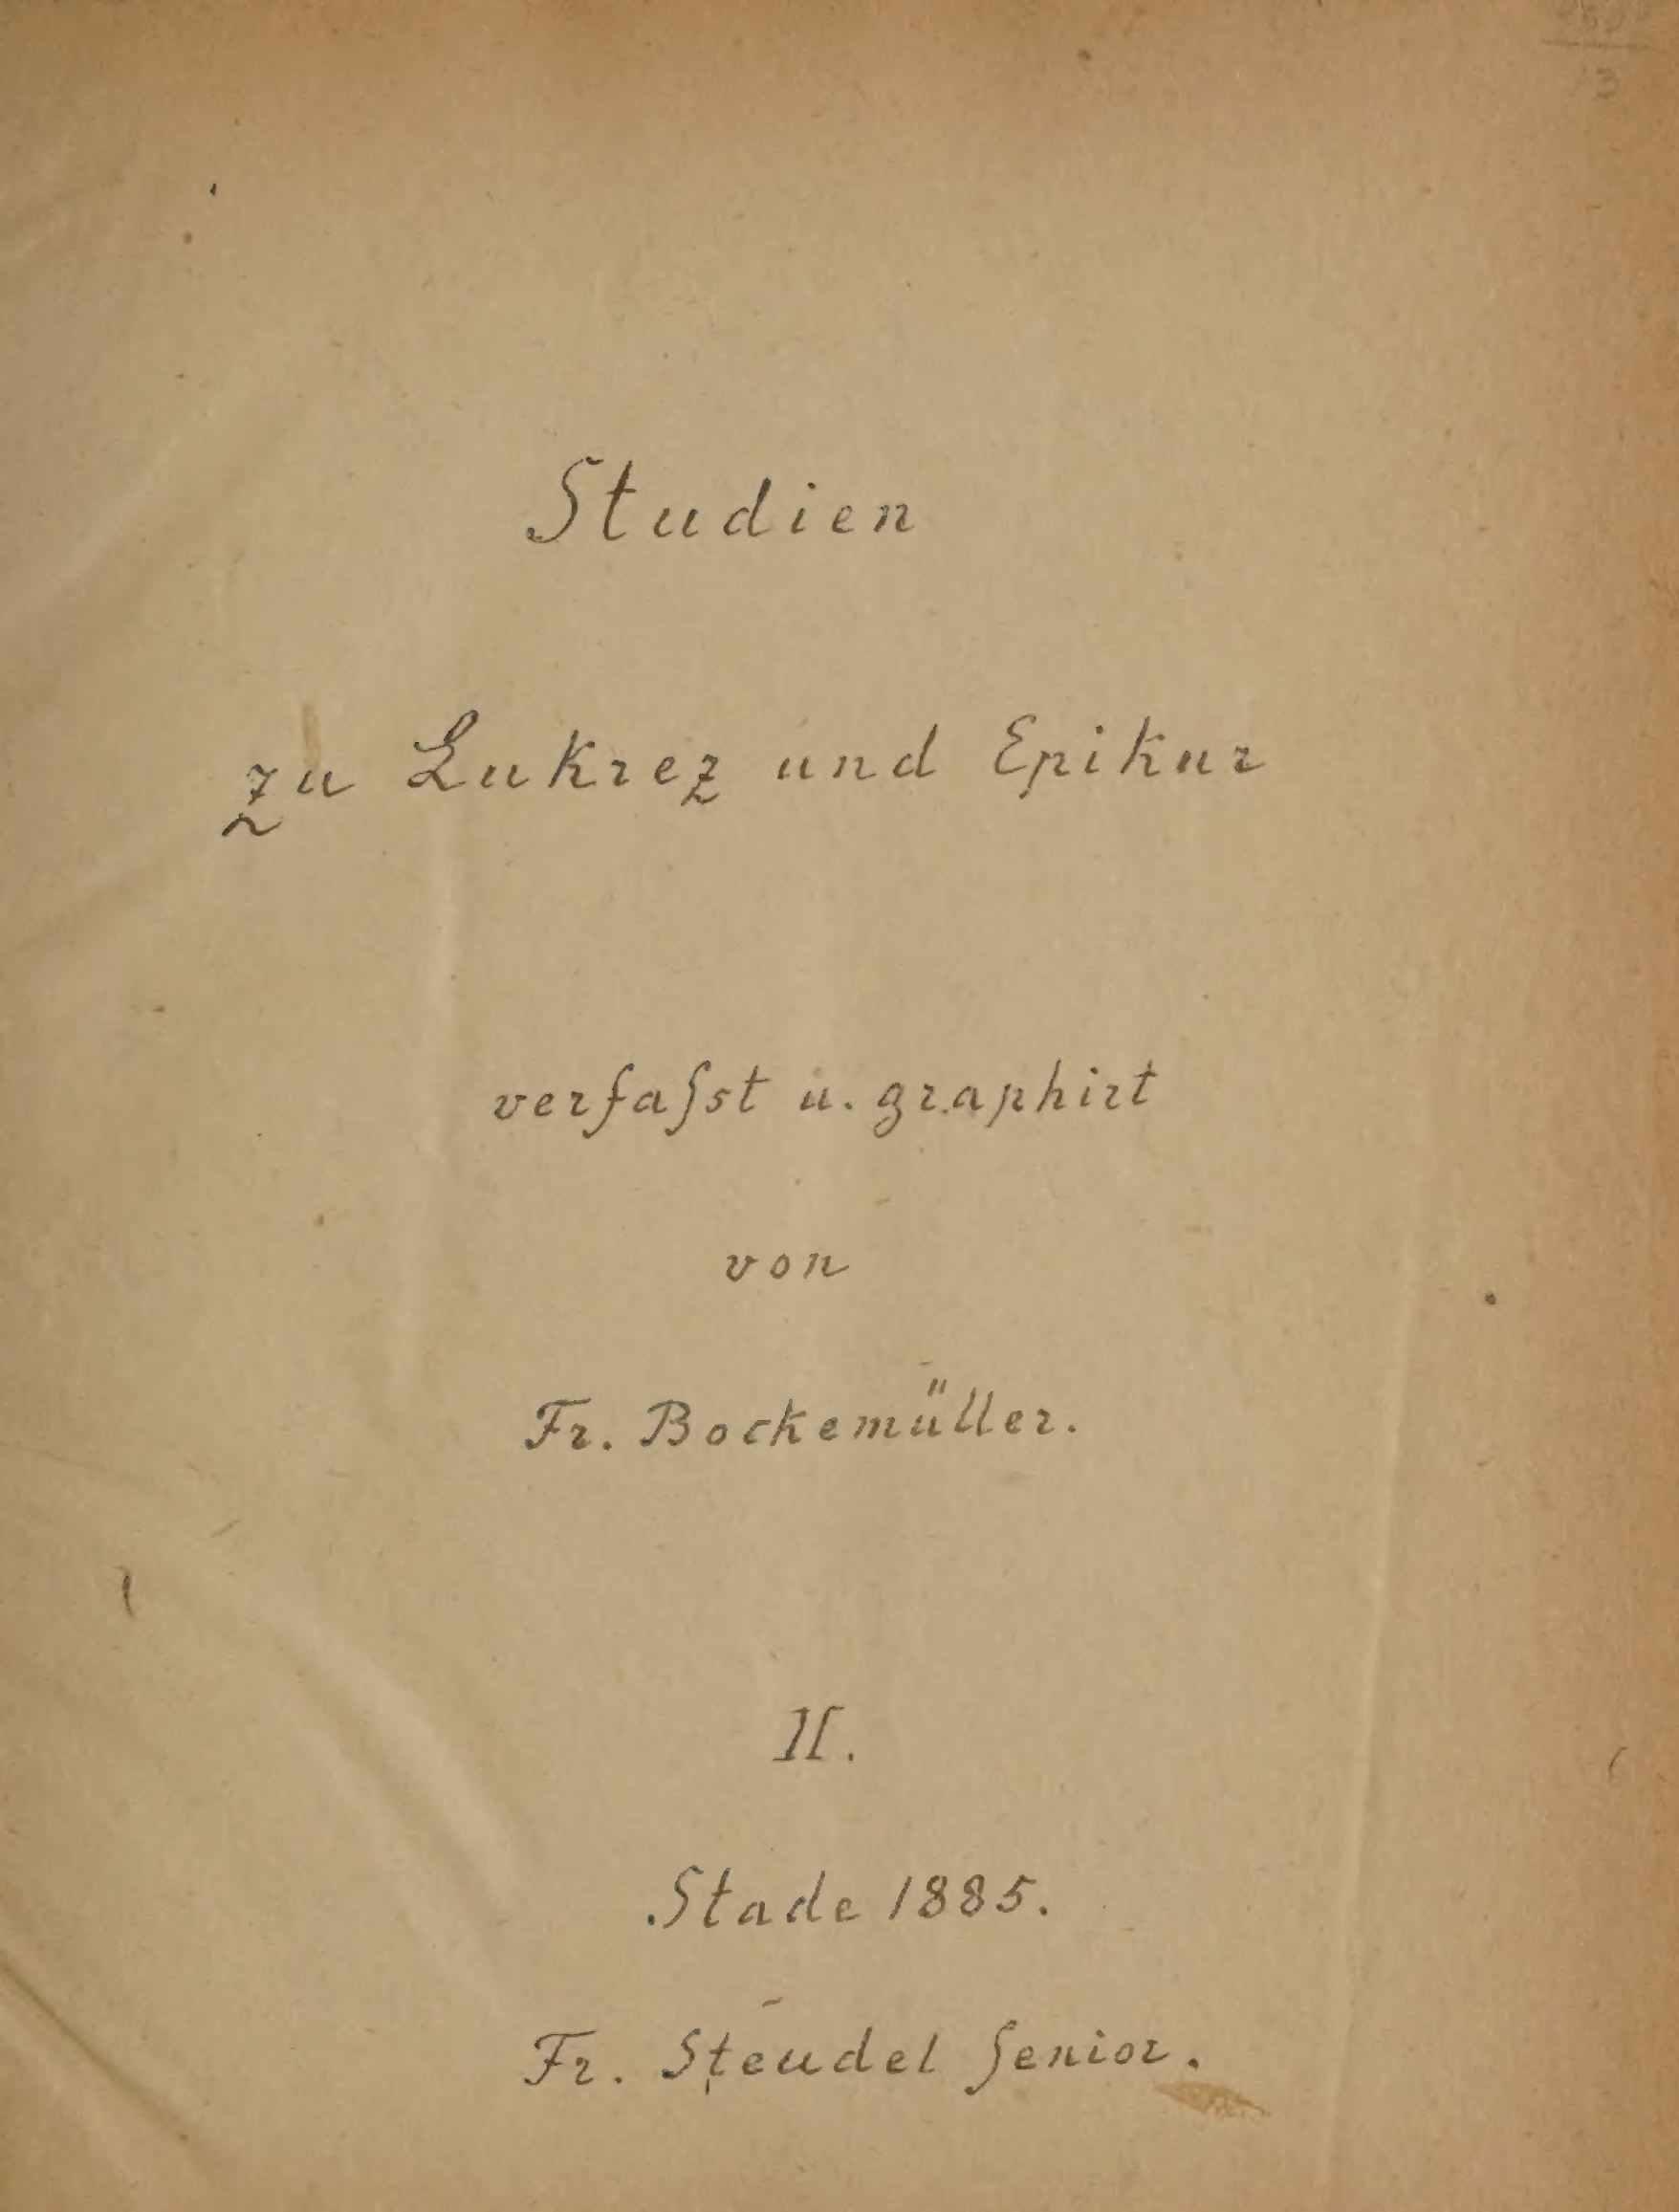 Studien
zu Lukrez und Epikur
verfaſst u. graphirt
von
Fr. Bockemüller.
II.
Stade 1885.
Fr. Steudel ſenior.